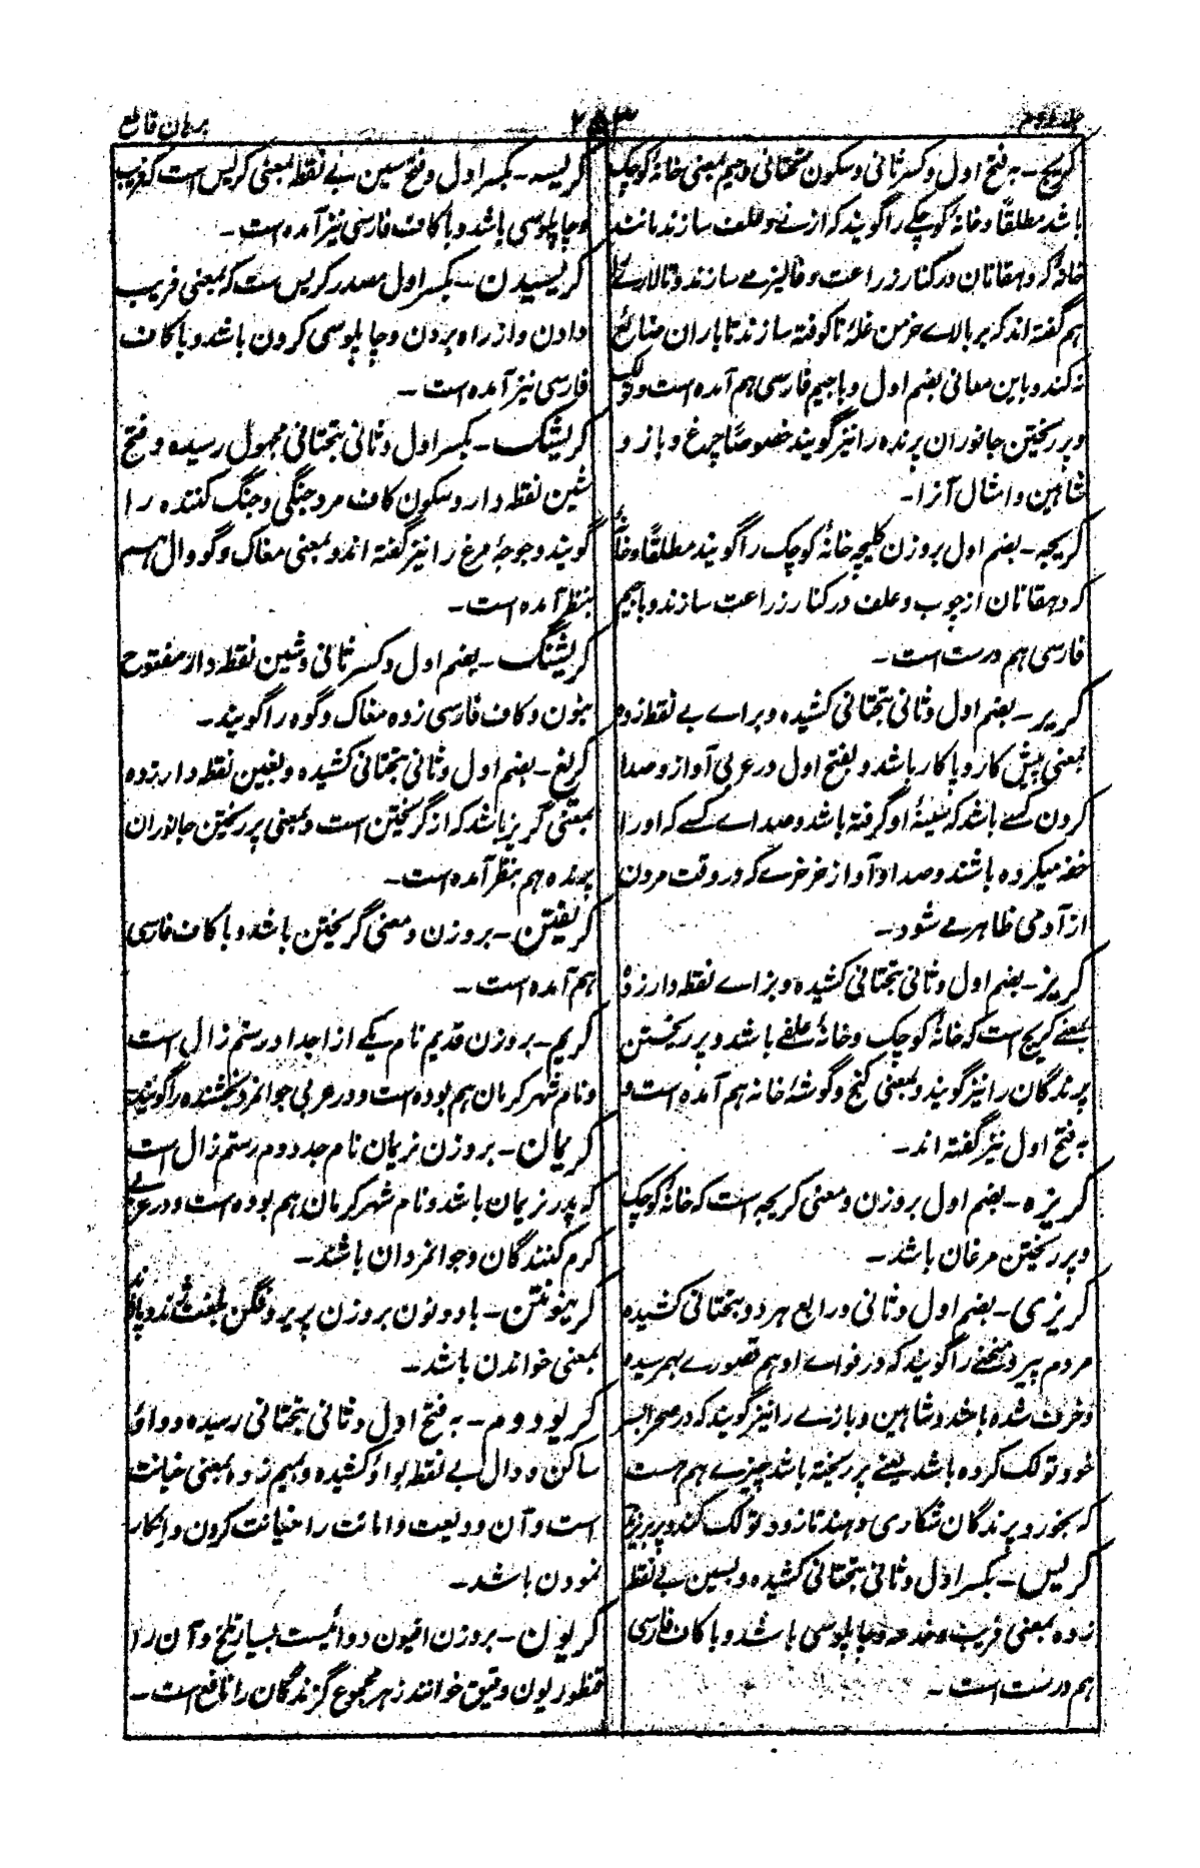 جلد دوم
۲۵۳
برهان قاطع
کریج - به فتح اول و کسر ثانی و سکون تحتانی و جیم بمعنی خانهٔ کوچک
باشد مطلقاً و خانهٔ کوچکے را گویند که از نے و علف سازند مانند
خانهٔ که دهقانان در کنار زراعت و فالیزے سازند و تالارے را
هم گفته اند که بر بالاے خرمن غلهٔ ناکوفته سازند تا باران ضائع
نه کند و باین معانی بضم اول و با جیم فارسی هم آمده است و تولک
و پر ریختن جانوران پرنده را نیز گویند خصوصاً چرغ و باز و
شاهین و امثال آنرا -
کریجه - بضم اول بروزن کلیچه خانهٔ کوچک را گویند مطلقاً و خانهٔ
که دهقانان از چوب و علف در کنار زراعت سازند و با جیم
فارسی هم درست است -
کریر - بضم اول و ثانی بتحتانی کشیده و براے بے نقطه زده
بمعنی پیش کار و پا کار باشد و بفتح اول در عربی آواز و صدا
کردن کسے باشد که سینهٔ او گرفته باشد و صداے کسے که او را
خفه میکرده باشند و صدا و آواز خرخرے که در وقت مردن
از آدمی ظاهرے شود -
کریز - بضم اول و ثانی بتحتانی کشیده و بزاے نقطه دار زده
بمعنے کریج است که خانهٔ کوچک و خانهٔ علفے باشد و پر ریختن
پرندگان را نیز گویند و بمعنی کنج و گوشهٔ خانه هم آمده است و
به فتح اول نیز گفته اند -
کریزه - بضم اول بروزن و معنی کریجه است که خانهٔ کوچک
و پر ریختن مرغان باشد -
کریزی - بضم اول و ثانی و رابع هر دو بتحتانی کشیده
مردم پیر و منحنے را گویند که در قواے او هم قصورے بهم رسیده
و خرف شده باشد و شاهین و بازے را نیز گویند که در صحرا بسر
خود تولک کرده باشد یعنے پر ریخته باشد و چیزے هم هست
که بخورد پرندگان شکاری دهند تا زود تولک کند و پر بریزد
کریس - بکسر اول و ثانی بتحتانی کشیده و بسین بے نقطه
زده بمعنی فریب و خدعه و چاپلوسی باشد و با کاف فارسی
هم درست است -
کریسه - بکسر اول و فتح سین بے نقطه بمعنی کریس است که فریب
و چاپلوسی باشد و با کاف فارسی نیز آمده است -
کریسیدن - بکسر اول مصدر کریس ست که بمعنی فریب
دادن و از راه بردن و چاپلوسی کردن باشد و با کاف
فارسی نیز آمده است -
کریشک - بکسر اول و ثانی بتحتانی مجهول رسیده و فتح
شین نقطه دار و سکون کاف مرد جنگی و جنگ کننده را
گویند و جوجهٔ مرغ را نیز گفته اند و بمعنی مغاک و گودال هم
بنظر آمده است -
کریشنگ - بضم اول و کسر ثانی و شین نقطه دار مفتوح
بنون و کاف فارسی زده مغاک و گوه را گویند -
کریغ - بضم اول و ثانی بتحتانی کشیده و بغین نقطه دار زده
بمعنی گریز باشد که از گریختن است و بمعنی پر ریختن جانوران
پرنده هم بنظر آمده است -
کریفتن - بروزن و معنی گریختن باشد و با کاف فارسی
هم آمده است -
کریم - بروزن قدیم نام یکے از اجداد رستم زال است
و نام شهر کرمان هم بوده است و در عربی جوانمرد و بخشنده را گویند
کریمان - بروزن نریمان نام جد دوم رستم زال است
که پدر نریمان باشد و نام شهر کرمان هم بوده است و در عربے
کرم کنندگان و جوانمردان باشند -
کریهونتن - با دو نون بروزن پریروفکن بلغت ژند و پازند
بمعنی خواندن باشد -
کریودوم - به فتح اول و ثانی بتحتانی رسیده و واو
ساکن و دال بے نقطه بواو کشیده و بمیم زده بمعنی خیانت
است و آن ودیعت و امانت را خیانت کردن و انکار
نمودن باشد -
کریون - بروزن افیون دوائیست بسیار تلخ و آن را
قنطوریون دقیق خوانند زهر مجموع گزندگان را نافع است -